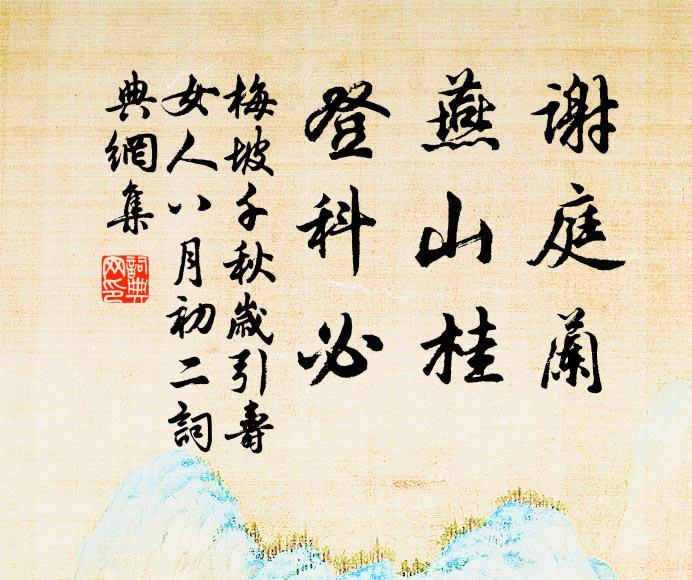 謝庭蘭
燕山桂
登科必
梅坡千秋歲引壽
女人八月初二詞
典網集
詞典
网印